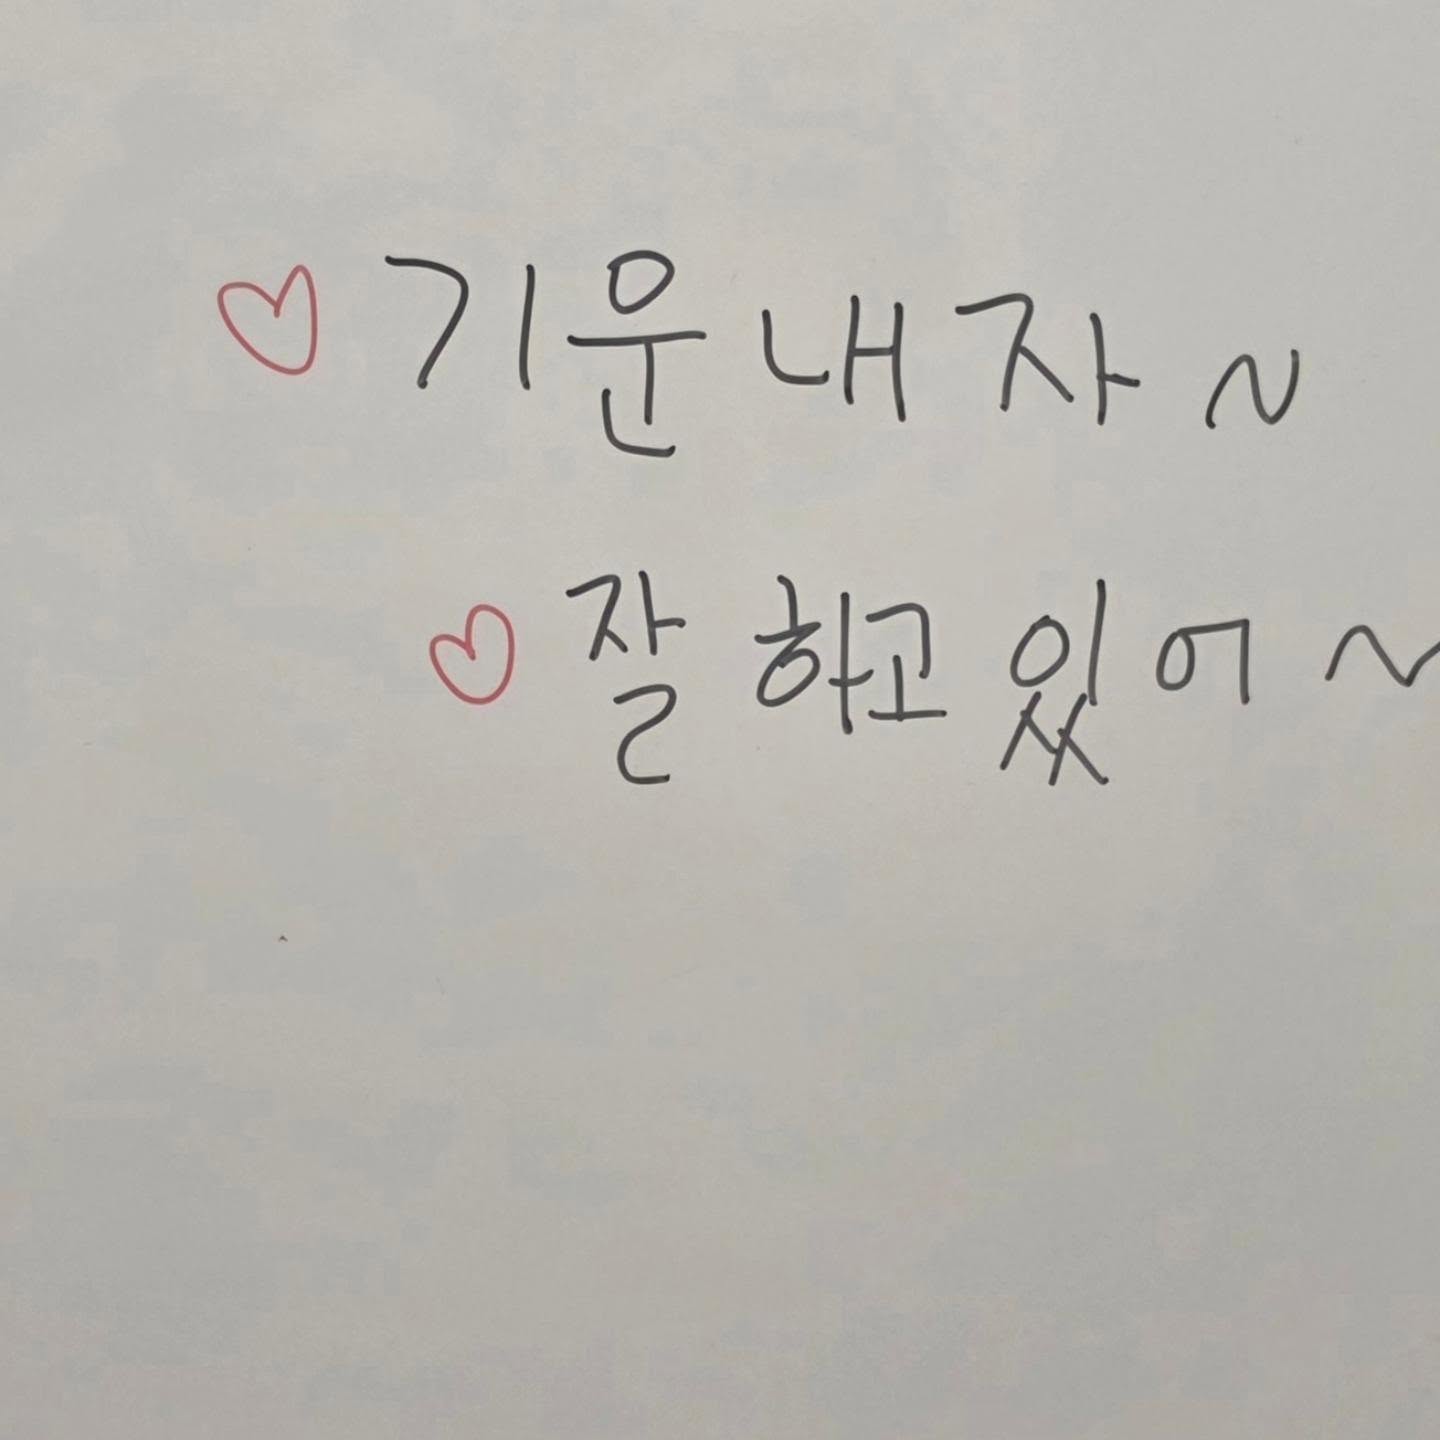 ♡ 기운 내 자 ~
♡ 잘 하고 있어 ~